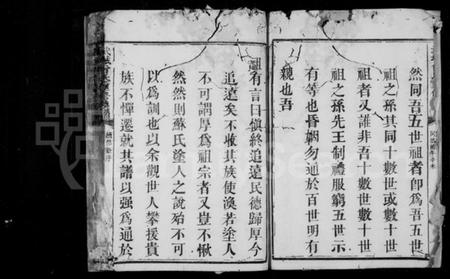 然同吾五世祖者卽爲吾五世
祖之孫其同十數世或數十世
祖者又誰非吾十數世數十世
祖之孫先王制禮服窮五世示
有等也昏姻勿通於百世明有
親也吾
祖有言曰愼終追遠民德歸厚今
追遠矣不收其族使渙若塗人
不可謂厚爲祖宗者又豈不愀
然然則蘇氏塗人之說殆不可
以爲訓也以余觀世人攀援貴
族不憚遷就其諸以强爲通於